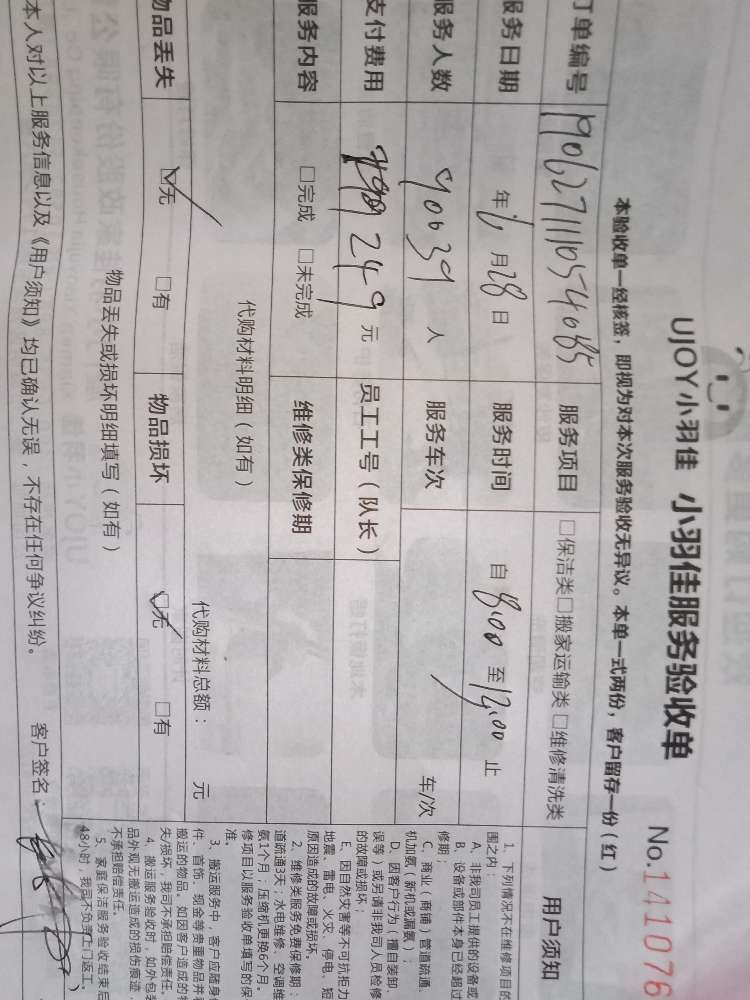 UJOY小羽佳 小羽佳服务验收单 No.141076
本验收单一经核签，即视为对本次服务验收无异议。本单一式两份，客户留存一份（红）
订单编号 服务项目 □保洁类□搬家运输类 □维修清洗类
服务日期 年 6月28日 服务时间 自8:00至12:00止
服务人数 人 服务车次 车/次
支付费用 249元 员工工号（队长）
服务内容 □完成 □未完成 维修类保修期
代购材料明细（如有） 代购材料总额： 元
物品丢失 ☑无 □有 物品损坏 ☑无 □有
物品丢失或损坏明细填写（如有）
本人对以上服务信息以及《用户须知》均已确认无误，不存在任何争议纠纷。 客户签名：
用户须知
1、下列情况不在维修项目的
围之内：
A、非我司员工提供的设备或
B、设备或部件本身已经超过
修期；
C、商业（商铺）管道疏通、
机加氨（新机或漏氨）；
D、因客户行为（擅自装卸、
误等）或另请非我司人员检修
的故障或损坏；
E、因自然灾害等不可抗拒力
地震、雷电、火灾、停电、短
原因造成的故障或损坏。
2、维修类服务免费保修期：
道疏通3天；水电维修、空调维
氨1个月，压缩机更换6个月。
修项目以服务验收单填写的保
准。
3、搬运服务中，客户应随身
件、首饰、现金等贵重物品并
搬运的物品。如因客户造成的
失/损坏，我司不承担赔偿责任。
4、搬运服务验收时，如外包装
品外观无搬运造成的损伤痕迹，
不承担赔偿责任。
5、家庭保洁服务验收结束后
48小时，我司不负责上门返工。